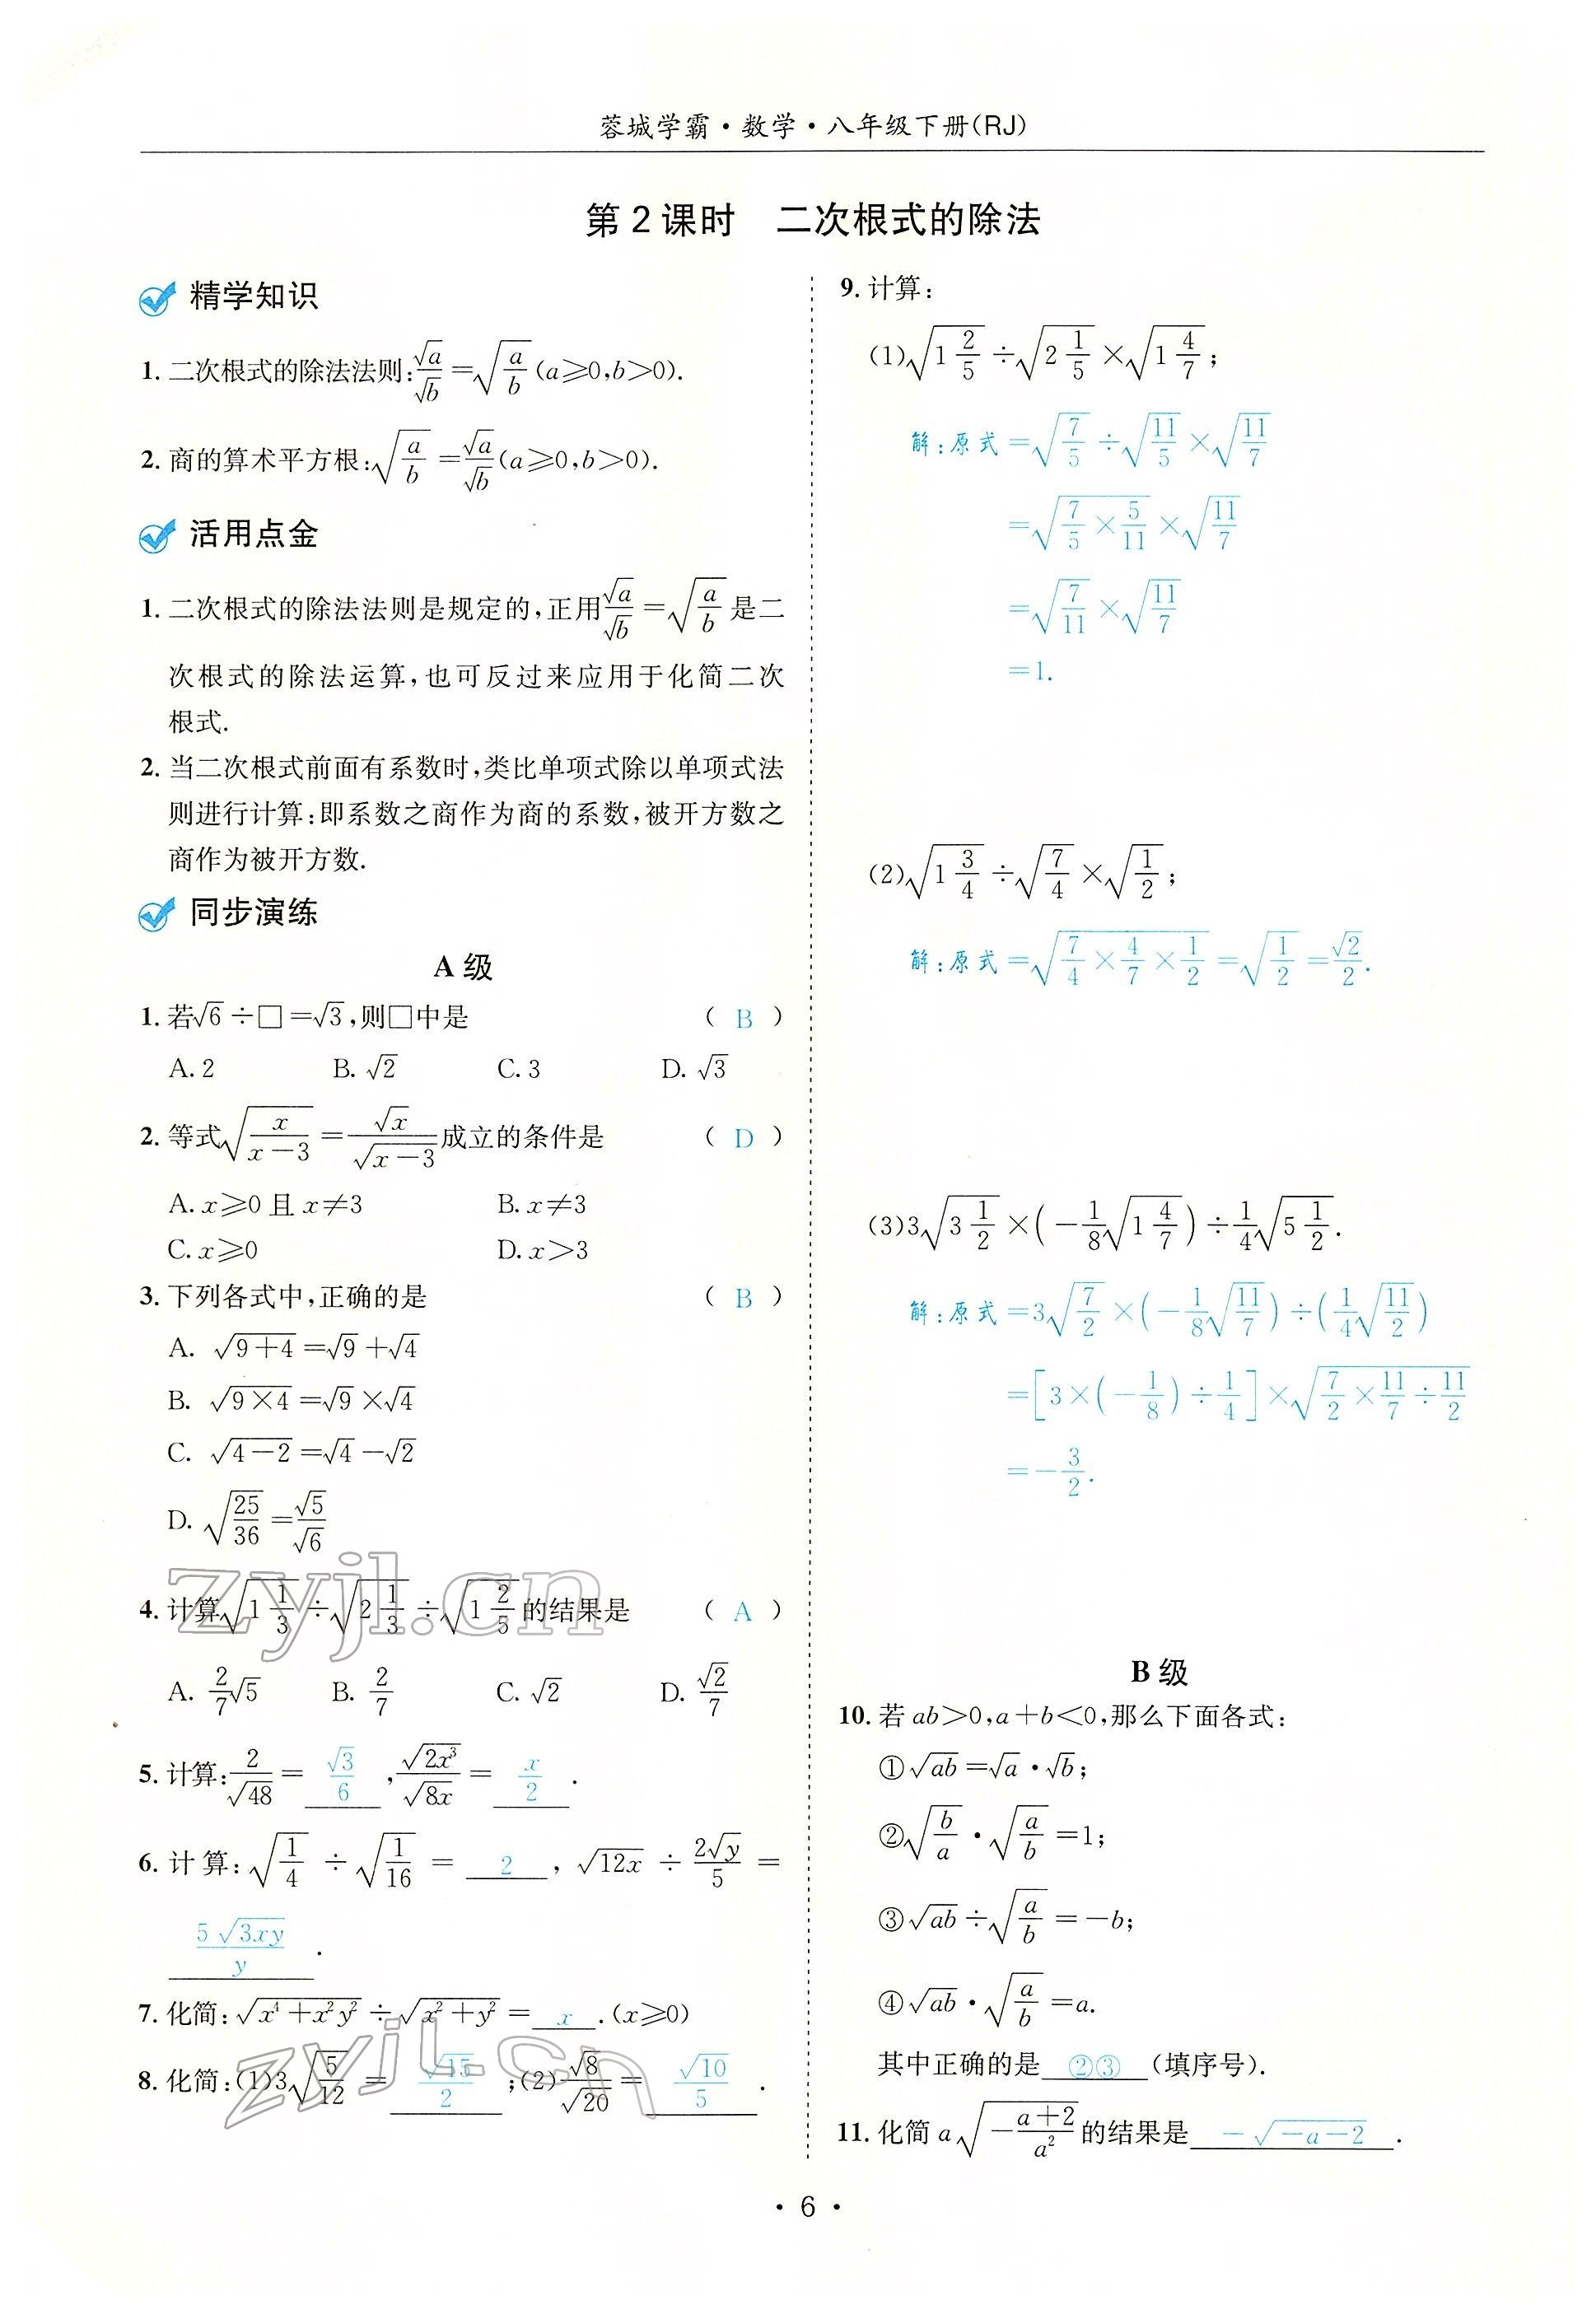 蓉城学霸·数学·八年级下册(RJ)
第2课时 二次根式的除法
精学知识
1. 二次根式的除法法则:√a/√b=√(a/b)(a≥0,b>0).
2. 商的算术平方根:√(a/b)=√a/√b(a≥0,b>0).
活用点金
1. 二次根式的除法法则是规定的,正用√a/√b=√(a/b)是二
次根式的除法运算,也可反过来应用于化简二次
根式.
2. 当二次根式前面有系数时,类比单项式除以单项式法
则进行计算:即系数之商作为商的系数,被开方数之
商作为被开方数.
同步演练
A级
1. 若√6÷□=√3,则□中是 ( B )
A. 2 B. √2 C. 3 D. √3
2. 等式√(x/(x-3))=√x/√(x-3)成立的条件是 ( D )
A. x≥0且x≠3 B. x≠3
C. x≥0 D. x>3
3. 下列各式中,正确的是 ( B )
A. √(9+4)=√9+√4
B. √(9×4)=√9×√4
C. √(4-2)=√4-√2
D. √(25/36)=√5/√6
4. 计算√(1 1/3)÷√(2 1/3)÷√(1 2/5)的结果是 ( A )
A. 2/7√5 B. 2/7 C. √2 D. √2/7
5. 计算:2/√48= √3/6 ,√(2x³)/√(8x)= x/2 .
6. 计算:√(1/4)÷√(1/16)= 2 ,√(12x)÷2√y/5=
5√(3xy)/y .
7. 化简:√(x⁴+x²y²)÷√(x²+y²)= x .(x≥0)
8. 化简:(1)3√(5/12)= √15/2 ;(2)√8/√20= √10/5 .
9. 计算:
(1)√(1 2/5)÷√(2 1/5)×√(1 4/7);
解:原式=√(7/5)÷√(11/5)×√(11/7)
=√(7/5×5/11)×√(11/7)
=√(7/11)×√(11/7)
=1.
(2)√(1 3/4)÷√(7/4)×√(1/2);
解:原式=√(7/4×4/7×1/2)=√(1/2)=√2/2.
(3)3√(3 1/2)×(-1/8√(1 4/7))÷1/4√(5 1/2).
解:原式=3√(7/2)×(-1/8√(11/7))÷(1/4√(11/2))
=[3×(-1/8)÷1/4]×√(7/2×11/7÷11/2)
=-3/2.
B级
10. 若ab>0,a+b<0,那么下面各式:
①√(ab)=√a·√b;
②√(b/a)·√(a/b)=1;
③√(ab)÷√(a/b)=-b;
④√(ab)·√(a/b)=a.
其中正确的是 ②③ (填序号).
11. 化简a√(-(a+2)/a²)的结果是 -√(-a-2) .
·6·
zyjl.cn
zyjl.cn